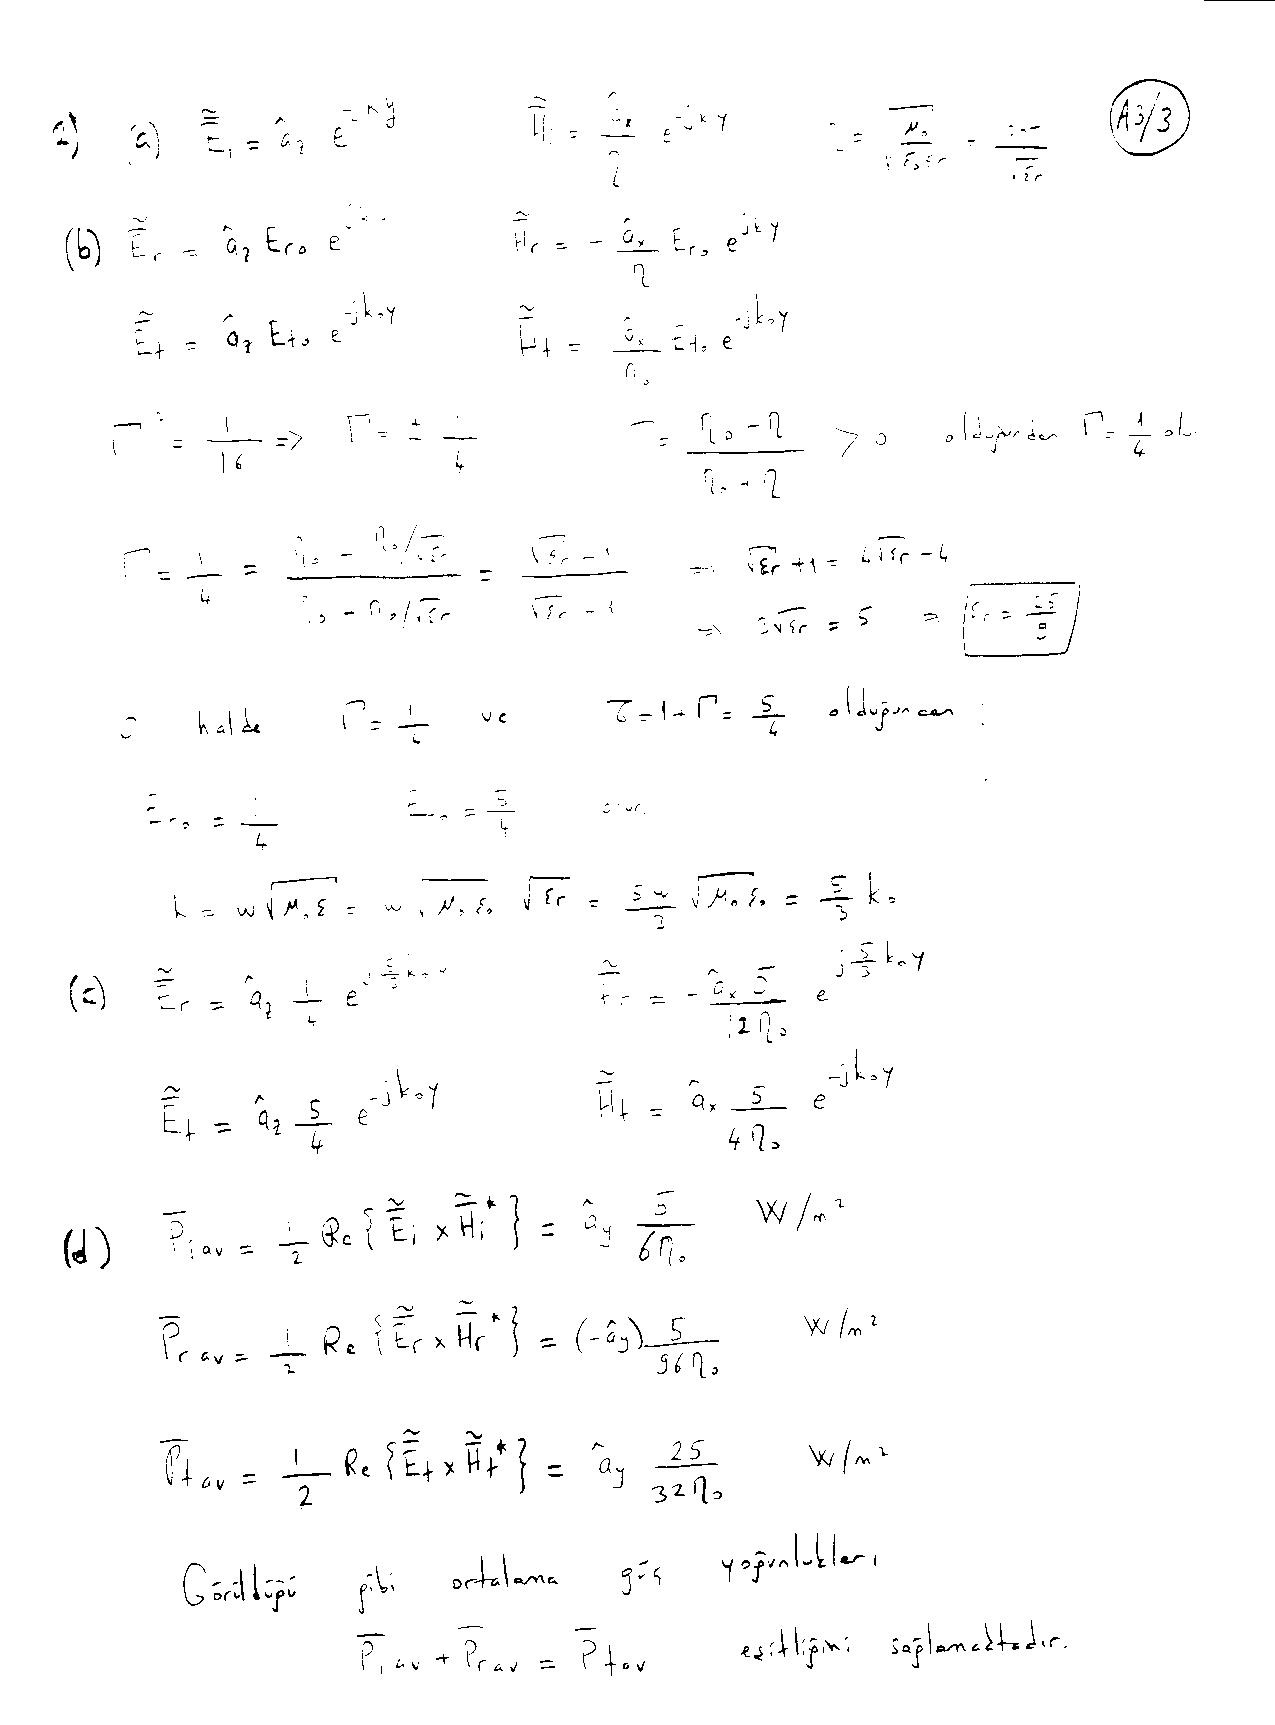 A3/3
2) a) Ẽ_i = â_z e^-jky H̃_i = â_x/η e^-jky
(b) Ẽ_r = â_z E_ro e^j H̃_r = - â_x/η E_ro e^jky
Ẽ_t = â_z E_to e^-jk₀y H̃_t = â_x/η₀ E_to e^-jk₀y
Γ² = 1/16 => Γ = ± 1/4 Γ = (η₀ - η)/(η₀ + η) > 0 olduğundan Γ = 1/4 ol.
Γ = 1/4 = = (√εr - 1) → √εr + 1 = 4√εr - 4
⇒ 3√εr = 5 ⇒ εr = 25/9
O halde Γ = 1/4 ve τ = 1 + Γ = 5/4 olduğundan :
E_ro = 1/4 = 5/4 olur.
k = w√μ₀ε = w√μ₀ε₀ √εr = 5w/3 √μ₀ε₀ = 5/3 k₀
(c) Ẽ_r = â_z 1/4 e^j5/3k₀y H̃_r = - â_x 5/12η₀ e^j5/3k₀y
Ẽ_t = â_z 5/4 e^-jk₀y H̃_t = â_x 5/4η₀ e^-jk₀y
(d) P̄_iav = 1/2 Re{Ẽ_i x H̃_i*} = â_y 5/6η₀ W/m²
P̄_rav = 1/2 Re{Ẽ_r x H̃_r*} = (-â_y) 5/96η₀ W/m²
P̄_tav = 1/2 Re{Ẽ_t x H̃_t*} = â_y 25/32η₀ W/m²
Görüldüğü gibi ortalama güç yoğunlukları
P̄_iav + P̄_rav = P̄_tav eşitliğini sağlamaktadır.